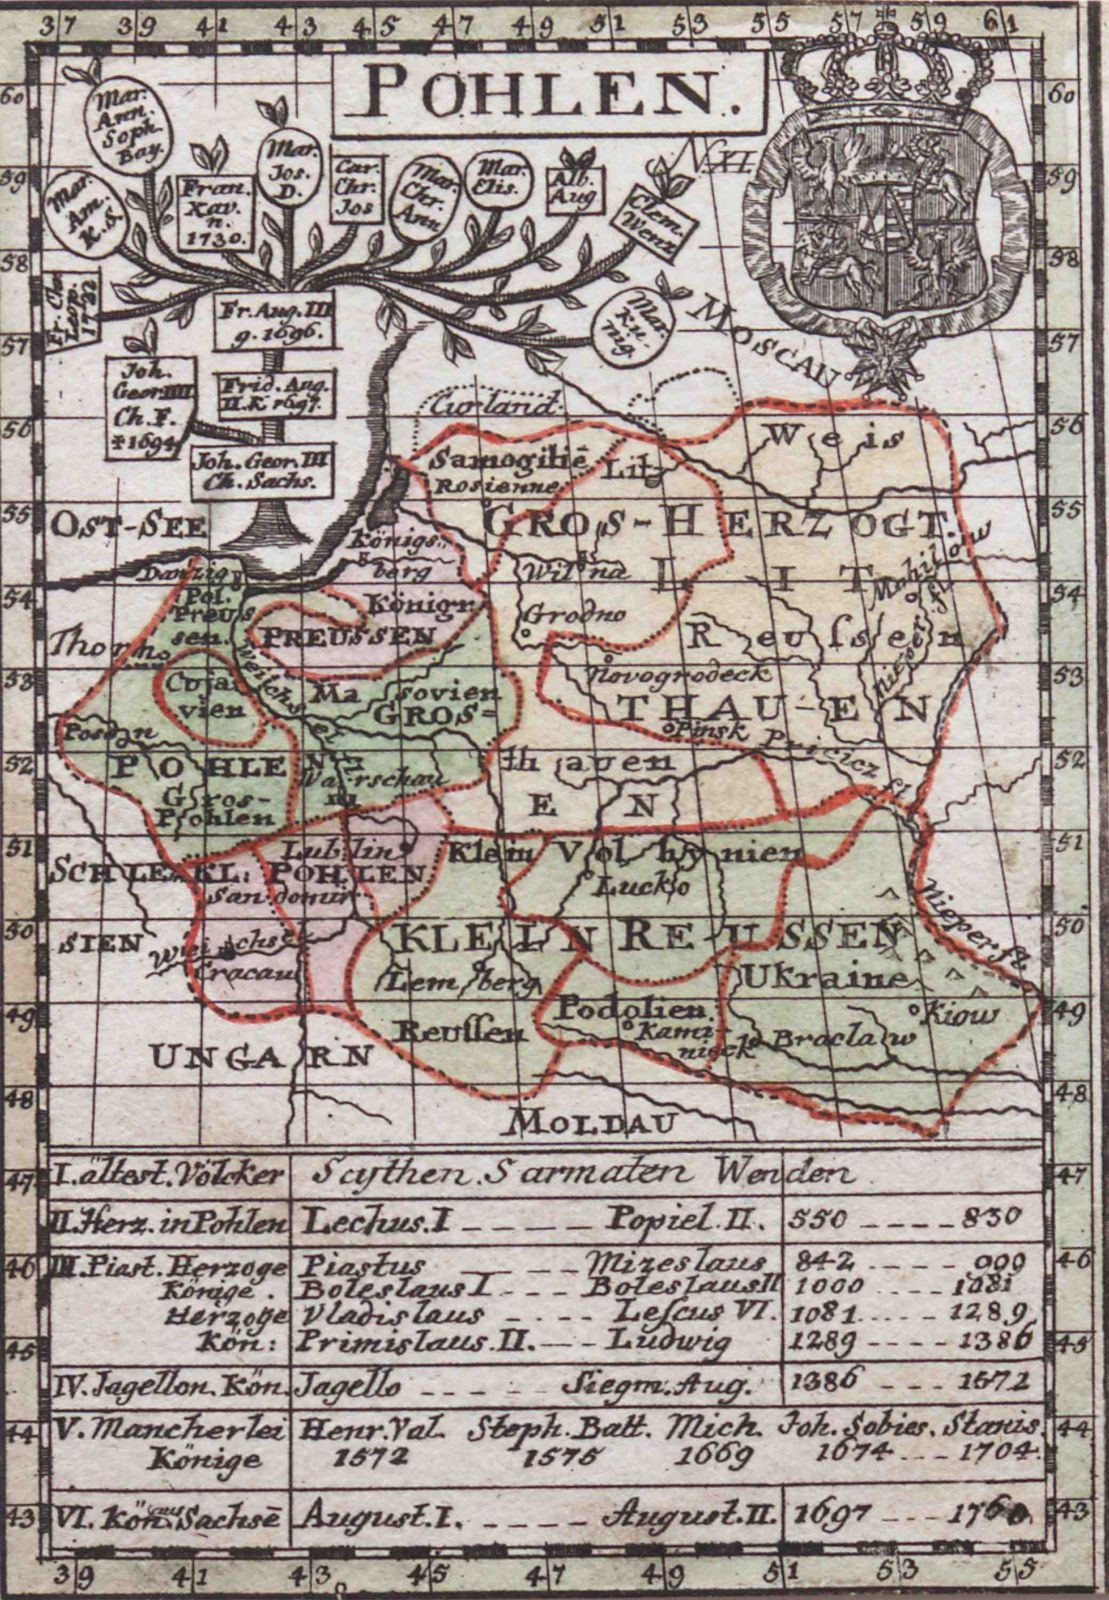 37 39 41 43 45 47 49 51 53 55 57 59 61
POHLEN.
N.XI.
60
59
58
57
56
55
54
53
52
51
50
49
48
47
46
45
44
43
60
59
58
57
56
55
54
53
52
51
50
49
48
47
46
45
44
43
Mar.
Ann.
Soph.
Bay.
Mar.
Am.
K.S.
Fran.
Xav.
n.
1730.
Mar.
Jos.
D.
Car.
Chr.
Jos
Mar.
Chr.
Ann
Mar.
Elis.
Alb.
Aug
Clem.
Wenz
Fr. Chr.
Leop.
1722
Mar.
Ku-
nig.
Fr. Aug. III
g. 1696.
Joh.
Geor. IIII
Ch. F.
†1694
Frid. Aug.
II. K 1697.
Joh. Geor. III
Ch. Sachs.
MOSCAU
Curland
Weis
Samogitiē
Rosienne
Lit
OST-SEE
GROS-HERZOGT.
Königs
berg
Wilna
LIT
Mohilow
Danzig
Pol.
Preus
sen.
Königr.
PREUSSEN
Grodno
Reussen
Nieper fl.
Thorn
Cujavien
Weichs
Masovien
GROS-
Novogrodeck
THAU-EN
Pinsk
Pricicz fl.
Posen
POHLEN
Warschau
thauen
EN
Gros-
Pohlen
SCHLE
SIEN
KL. POHLEN
Lublin
Sandomir
Klein Volhynien
Lucko
Weichsel
Cracau
KLEIN REUSSEN
Nieper fl.
Lemberg
Ukraine
Reussen
Podolien
Kami-
nieck
Braclaw
Kiow
UNGARN
MOLDAU
I. ältest. Völcker Scythen. Sarmaten Wenden
II. Herz. in Pohlen Lechus. I ----- Popiel. II. 550 ---- 830
III. Piast. Herzoge Piastus ---- Mizeslaus 842 ---- 999
Könige. Boleslaus I ---- Boleslaus II 1000 .... 1081
Herzoge Vladislaus ---- Lescus VI. 1081 ..... 1289
Kön: Primislaus. II. --- Ludwig 1289 ---- 1386
IV. Jagellon. Kön. Jagello ---- Siegm. Aug. 1386 --- 1572
V. Mancherlei Henr. Val. Steph. Batt. Mich. Joh. Sobies. Stanis.
Könige 1572 1575 1669 1674 --- 1704.
VI. Kön aus Sachsē August. I. ----- August. II. 1697 --- 1760.
39 41 43 45 47 49 51 53 55